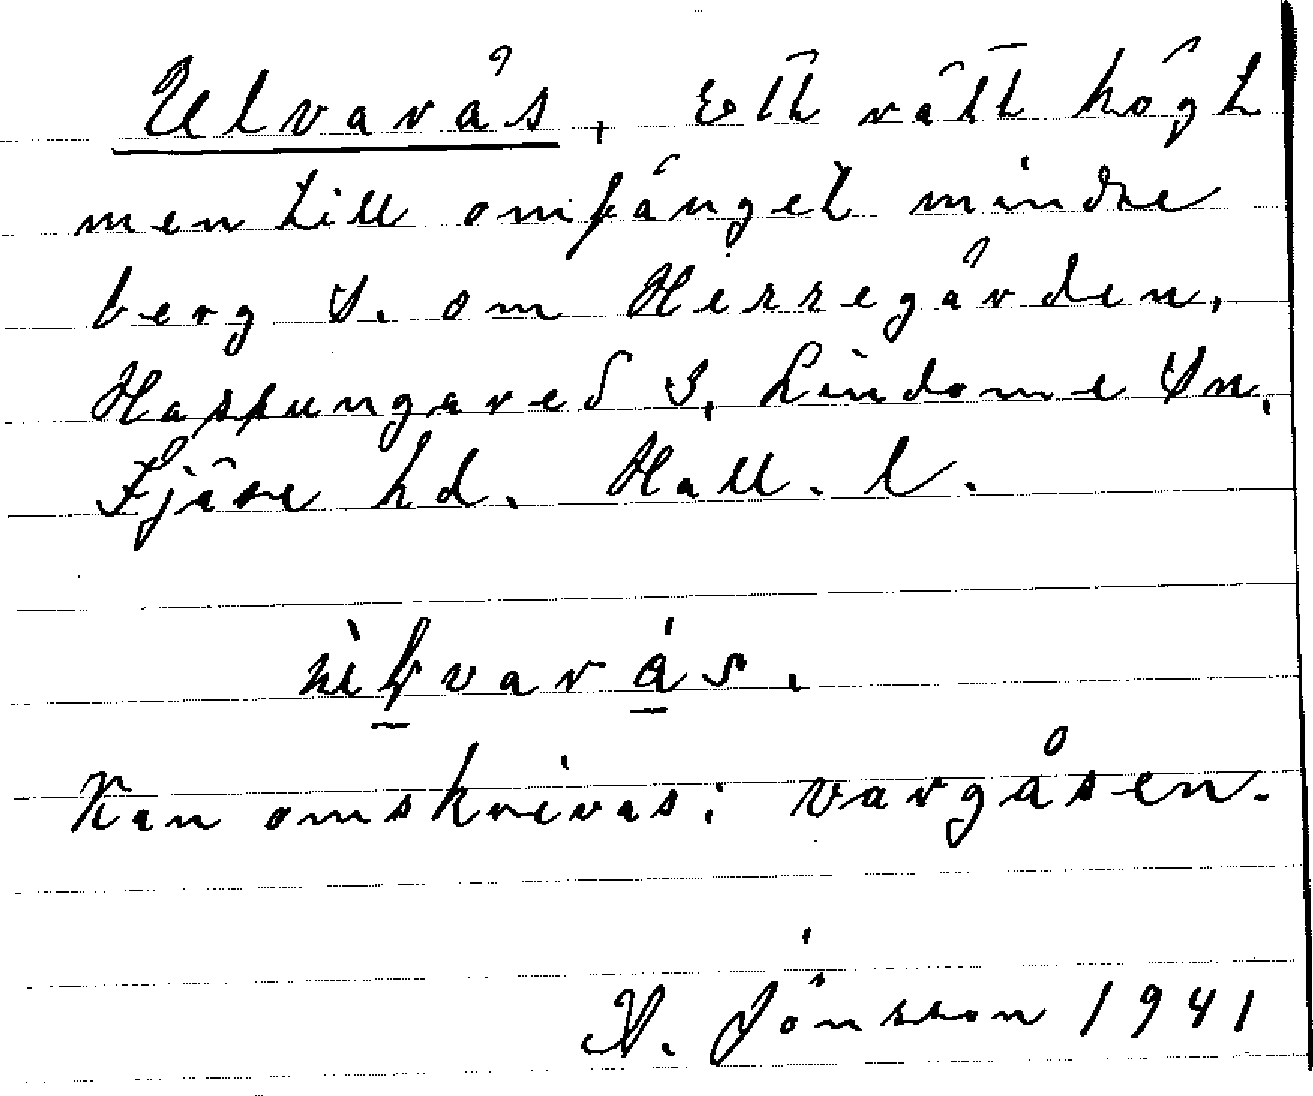 Ulvarås, Ett rätt högt
men till omfånget mindre
berg S. om Herregården,
Hassungared S, Lindome Sn,
Fjäre hd. Hall. l.
Kan omskrivas: vargåsen.
Jönsson 1941